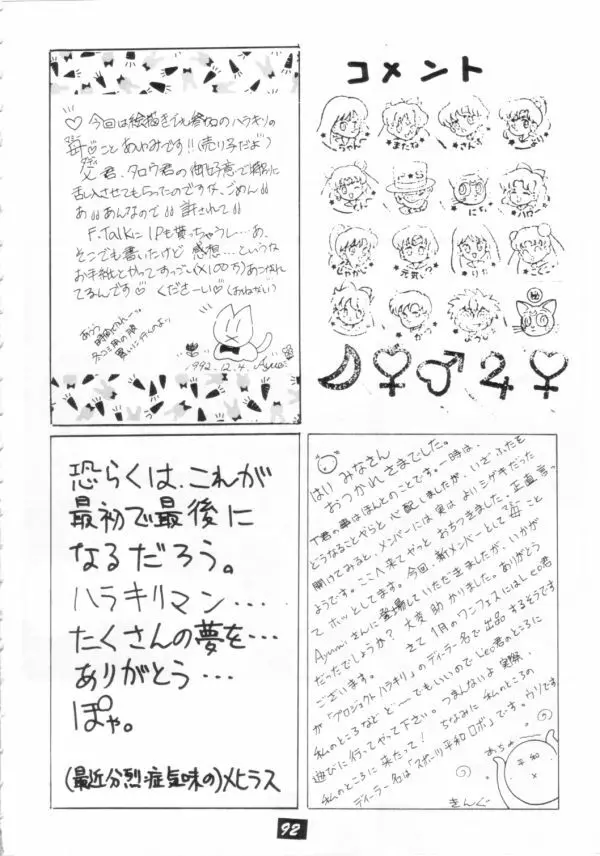 コメント
♡今回は絵描きでも登場のハラキリの
毎♡ことあゆみです!!(売り子だよ)
父君、タロウ君の御好意で特別に
乱入させてもらったのですケ、ごめん〃
あ〃あんなので〃許されて〃
F.Talkに1Pも貰っちゃうし…あ、
そこでも書いたけど 感想…というな
お手紙とかってすっごい(×100万)あこがれ
てるんです♡ くださーい♡(おねがい)
1992.12.4. Ayumi
恐らくは、これが
最初で最後に
なるだろう。
ハラキリマン…
たくさんの夢を…
ありがとう…
ぽや。
(最近分烈症気味の)メヒラス
はい みなさん
おつかれさまでした。
T君の事はほんとのことです。一時は、
どうなることやらと心配しましたが、いざふたを
開けてみると、メンバーには実はよいシゲキだった
ようです。ここへ来てやっとおちつきました。正直言っ
てホッとしてます。今回、新メンバーとして毎こと
Ayumiさんに登場していただきましたが、いかが
だったでしょうか? 大変助かりました。ありがとう
ございます。 さて1月のワンフェスにはLeo君
が「プロジェクトハラキリ」のディーラー名で出品するそうです
私のところなどどーでもいいのでLeo君のところに
遊びに行ってやって下さい。つまんないよ実際、
私のところに来たって! ちなみに私のところの
ディーラー名は「スポーツ平和ロボ」です。ウソです
めちゃ
平和
きんぐ
92